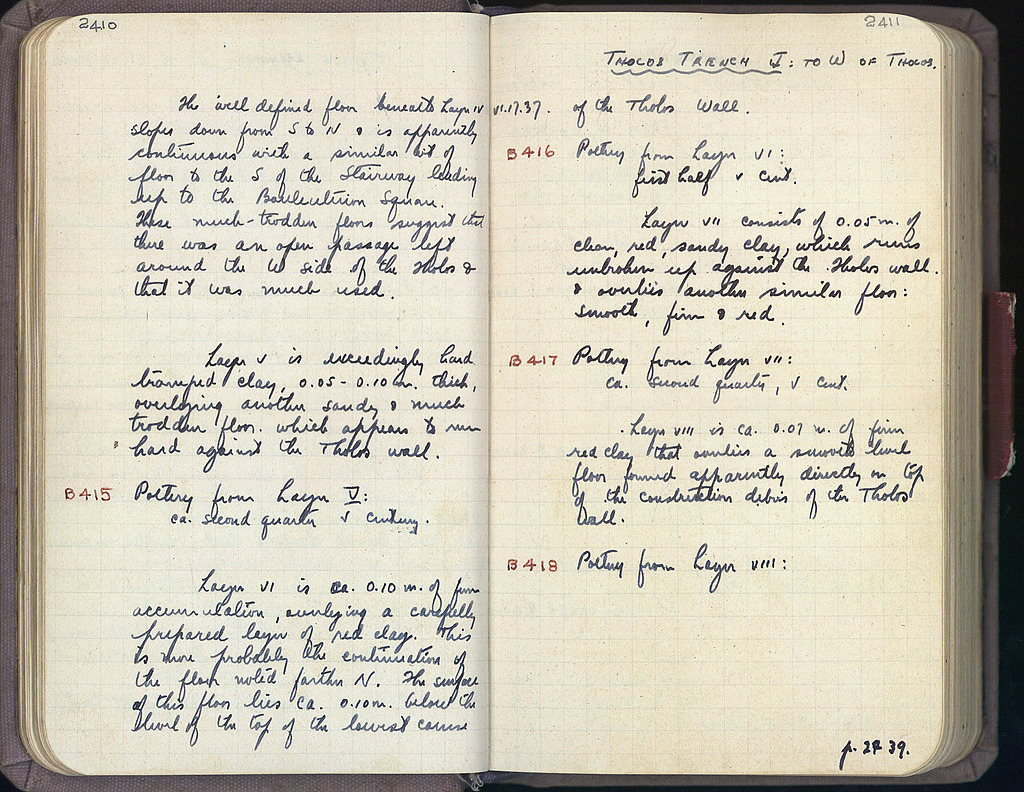 2410
The well defined floor beneath Layer IV
slopes down from S to N & is apparently
continuous with a similar bit of
floor to the S of the Stairway leading
up to the Bouleuterion Square.
These much-trodden floors suggest that
there was an open passage left
around the W side of the Tholos &
that it was much used.
Layer V is exceedingly hard
tramped clay, 0.05-0.10 m. thick,
overlying another sandy & much
trodden floor. which appears to run
hard against the Tholos wall.
B415 Pottery from Layer V:
ca. second quarter V century.
Layer VI is ca. 0.10 m. of firm
accumulation, overlying a carefully
prepared layer of red clay. This
is more probably the continuation of
the floor noted farther N. The surface
of this floor lies ca. 0.10 m. below the
level of the top of the lowest course
2411
THOLOS TRENCH I: TO W OF THOLOS.
VI.17.37. of the Tholos Wall.
B416 Pottery from Layer VI:
first half V cent.
Layer VII consists of 0.05 m. of
clean, red, sandy clay, which runs
unbroken up against the Tholos wall.
& overlies another similar floor:
smooth, firm & red.
B417 Pottery from Layer VII:
ca. second quarter, V cent.
Layer VIII is ca. 0.07 m. of firm
red clay that overlies a smooth level
floor formed apparently directly on top
of the construction debris of the Tholos
Wall.
B418 Pottery from Layer VIII:
p. 2439.